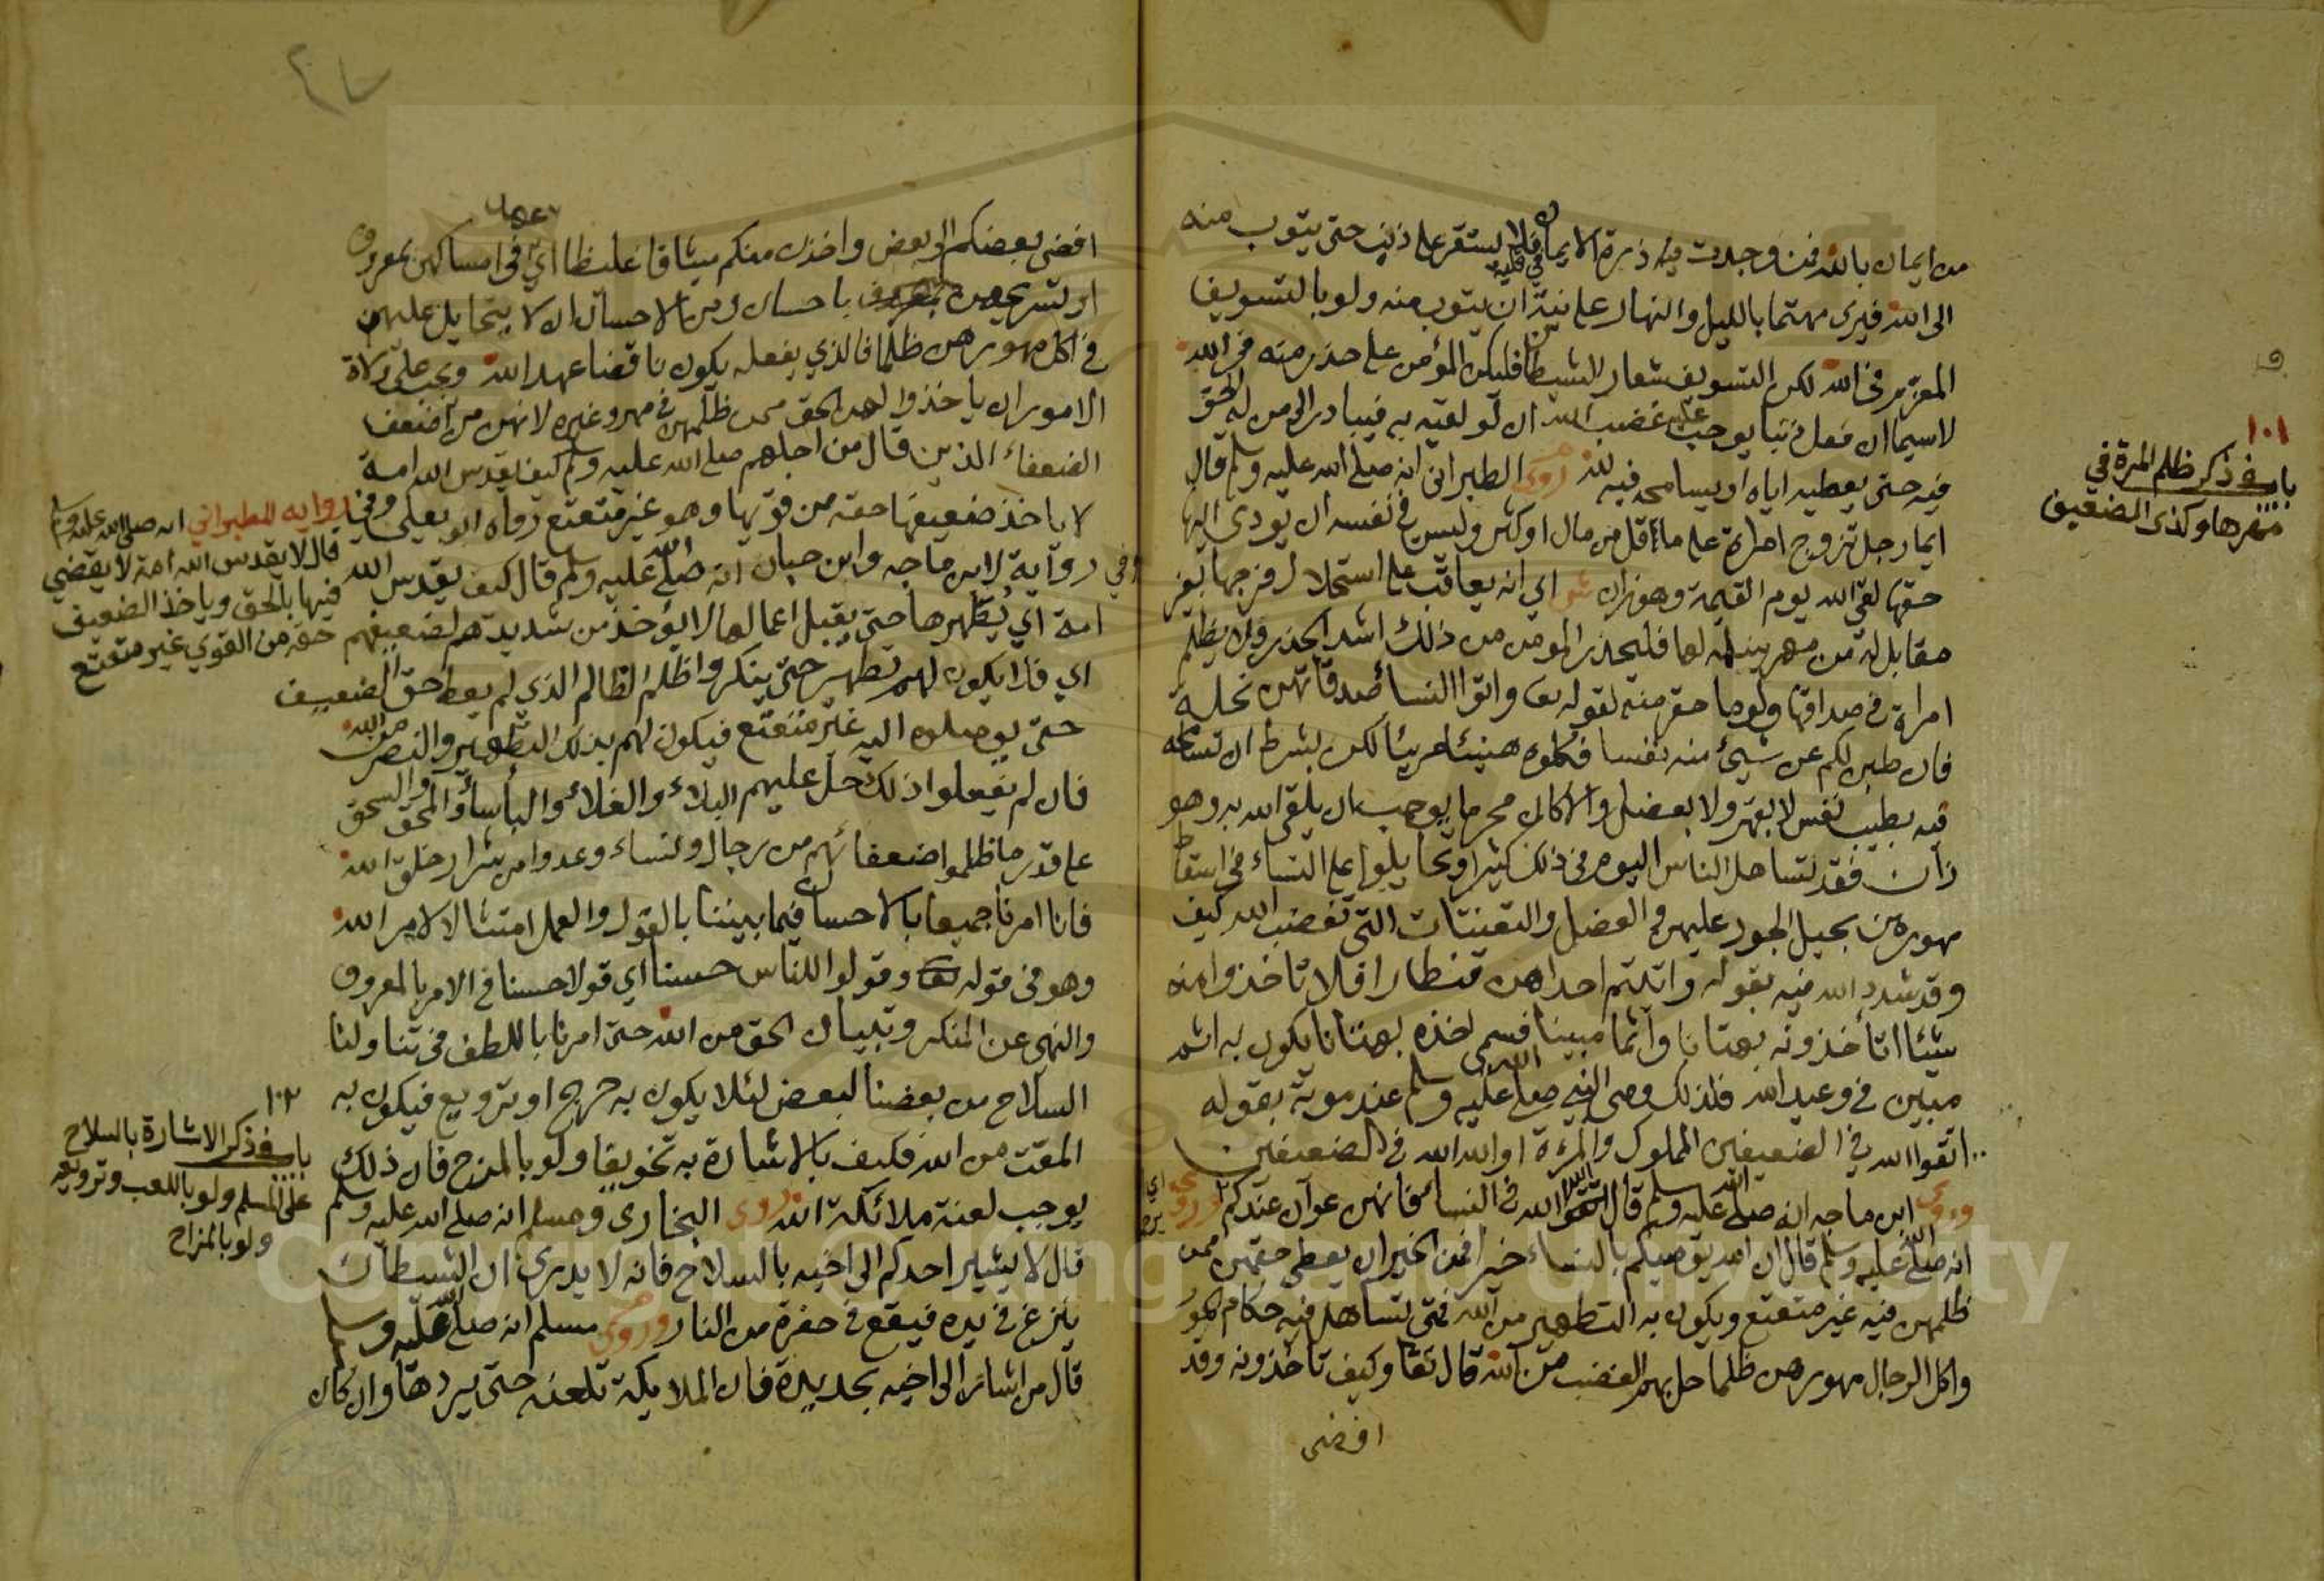 من ايمان بالله فمن وجدت فيه ذرة الايمان فلا يستقر على ذنب حتى يتوب منه
الى الله فيرى مهتما بالليل والنهار على نية ان يتوب منه ولو بالتسويف
في الله لكن التسويف شعار الشيطان فليكن المؤمن على حذر منه في الله
لاسيما ان فعل ذنبا يوجب عليه غضب الله ان لو لقيه به فيبادر الى من له الحق
فيه حتى يعطيه اياه او يسامحه فيه لله روى الطبراني انه صلى الله عليه وسلم قال
ايما رجل تزوج امراة على ما اقل من مال او كثر وليس في نفسه ان يودي اليها
حقها لقي الله يوم القيمة وهو زان اي انه يعاقب على استحلال فرجها بغير
مقابلة من مهر لها فليحذر المومن من ذلك اشد الحذر ولا يظلم
امراة في صداقها ولو ما حقر منه لقوله تعا واتوا النسأ صدقاتهن نحلة
فان طبن لكم عن شيئ منه نفسا فكلوه هنيئا مريئا لكن بشرط ان تسامحه
فيه بطيب نفس لا بقهر ولا بعضل والا كان محرما يوجب ان يلقى الله به وهو
زان فقد تساهل الناس اليوم في ذلك كثيرا وتحايلوا على النساء في اسقاط
مهورهن بحيل الجور عليهن والعضل والتعنتات التي تغضب الله كيف
وقد شدد الله فيه بقوله واتيتم احداهن قنطارا فلا تاخذوا منه
شيئا اتأخذونه بهتانا واثما مبينا فسمى اخذه بهتانا يكون به اثم
مبين في وعيد الله فلذلك وصى النبي صلى الله عليه وسلم عند موته بقوله
اتقوا الله في الضعيفين المملوك والمرءة او الله الله في الضعيفين
وروى ابن ماجه انه صلى الله عليه وسلم قال اتقوا الله في النسأ فانهن عوان عندكم وروى
انه صلى الله عليه وسلم قال ان الله يوصيكم بالنساء خيرا فمن الخير ان يعطى حقهن ممن
ظلمهن فيه غير متعتع ويكون به التطهير من الله فمتى تساهل فيه حكام الجور
واكل الرجال مهورهن ظلما حل بهم الغضب من الله قال تعا وكيف تاخذونه وقد
افضى
١٠١
باب في ذكر ظلم المرة في
مهرها وكذى الضعيف
افضى بعضكم الى بعض واخذن منكم ميثاقا غليظا اي في امساكهن بمعروف
او تسريحهن باحسان ومن الاحسان ان لا يتحايل عليهن
في اكل مهورهن ظلما فالذي يفعله يكون ناقضا عهد الله ويجب على ولاة
الامور ان ياخذوا لهن الحق ممن ظلمهن في مهر وغيره لانهن من اضعف
الضعفاء الذين قال من اجلهم صلى الله عليه وسلم كيف يقدس الله امة
لا ياخذ ضعيفها حقه من قويها وهو غير متعتع رواه ابو يعلى
وفي رواية لابن ماجه وابن حبان انه صلى الله عليه وسلم قال كيف يقدس الله
امة اي يطهرها حتى يقبل اعمالها لا يؤخذ من شديدهم لضعيفهم
اي فلا يكون لهم تطهير حتى ينكروا ظلم الظالم الذي لم يعط حق الضعيف
حتى يوصلوه اليه غير متعتع فيكون لهم بذلك التطهير والنصر من الله
فان لم يفعلوا ذلك حل عليهم البلاء والغلاء والبأسأ والمحق والسحق
على قدر ما ظلموا ضعفائهم من رجال ونساء وعدوا من شرار خلق الله
فانا امرنا جميعا بالاحسان فيما بيننا بالقول والعمل امتثالا لامر الله
وهو في قوله تعا وقولوا للناس حسنا اي قولا حسنا في الامر بالمعروف
والنهي عن المنكر وتبيان الحق من الله حتى امرنا باللطف في تناولنا
السلاح من بعضنا لبعض لئلا يكون به جرح او ترويع فيكون به
المقت من الله فكيف بالاشارة به تخويفا ولو بالمزح فان ذلك
يوجب لعنة ملائكة الله روى البخاري ومسلم انه صلى الله عليه وسلم
قال لا يشير احدكم الى اخيه بالسلاح فانه لا يدري ان الشيطان
ينزع في يده فيقع في حفرة من النار وروى مسلم انه صلى الله عليه وسلم
قال من اشار الى اخيه بحديدة فان الملايكة تلعنه حتى يردها وان كان
وفي رواية للطبراني انه صلى الله عليه وسلم
قال لا يقدس الله امة لا يقضي
فيها بالحق وياخذ الضعيف
حقه من القوي غير متعتع
١٠٢
باب في ذكر الاشارة بالسلاح
على المسلم ولو باللعب وترويعه
ولو بالمزاح
Copyright © King Saud University